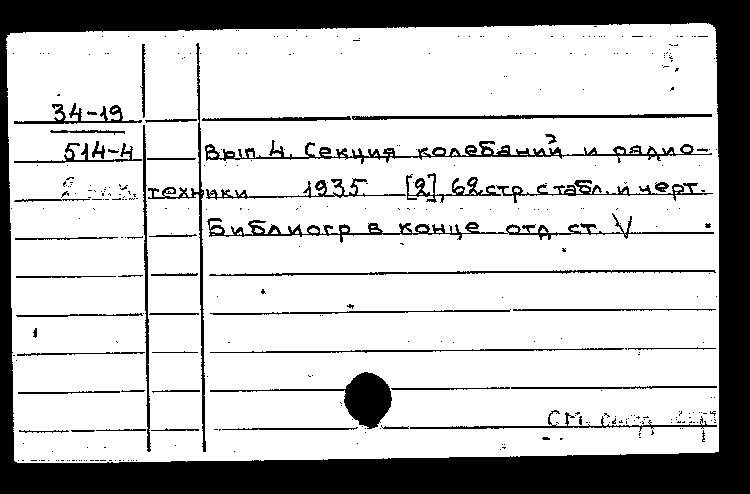 5.
34-19
514-4 Вып. 4. Секция колебаний и радио-
2 техники 1935 [2], 62 стр. с табл. и черт.
Библиогр в конце отд ст. V
см. след